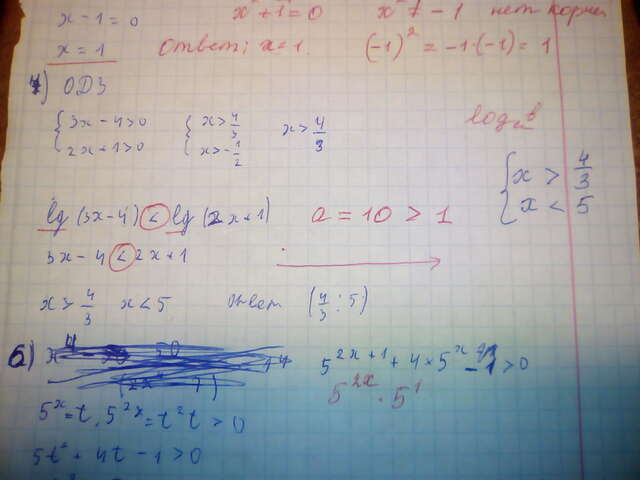 x - 1 = 0
x² + 1 = 0
x² ≠ - 1 нет корней
x = 1
Ответ: x = 1.
(-1)² = -1·(-1) = 1
4) ОДЗ
{3x - 4 > 0
{2x + 1 > 0
{x > 4/3
{x > -1/2
x > 4/3
{x > 4/3
{x < 5
lg (3x - 4) < lg (2x + 1)
a = 10 > 1
3x - 4 < 2x + 1
x > 4/3 x < 5 Ответ (4/3 ; 5)
6)
5^(2x+1) + 4 × 5^x - 1 > 0
5^(2x) · 5^1
5^x = t, 5^(2x) = t² t > 0
5t² + 4t - 1 > 0